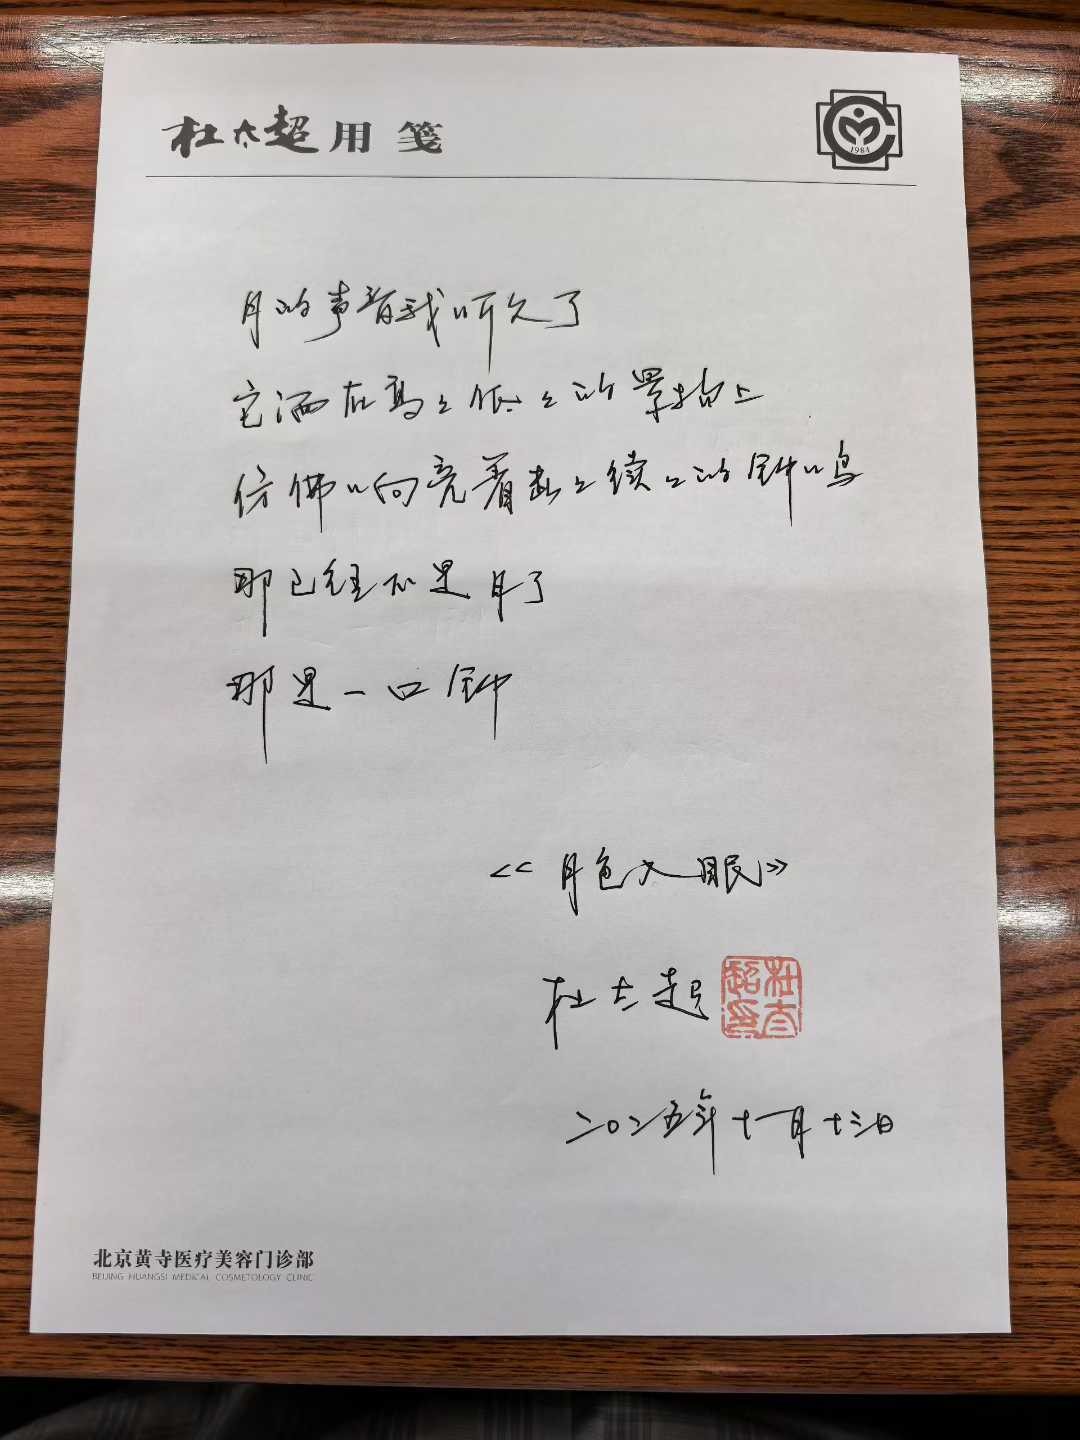 杜太超用笺
1984
月的声音我听久了
它洒在高々低々的景招上
仿佛响亮着断々续々的钟鸣
那已经不是月了
那是一口钟
《月色入眼》
杜太超
杜太超印
二〇二五年十一月十三日
北京黄寺医疗美容门诊部
BEIJING HUANGSI MEDICAL COSMETOLOGY CLINIC